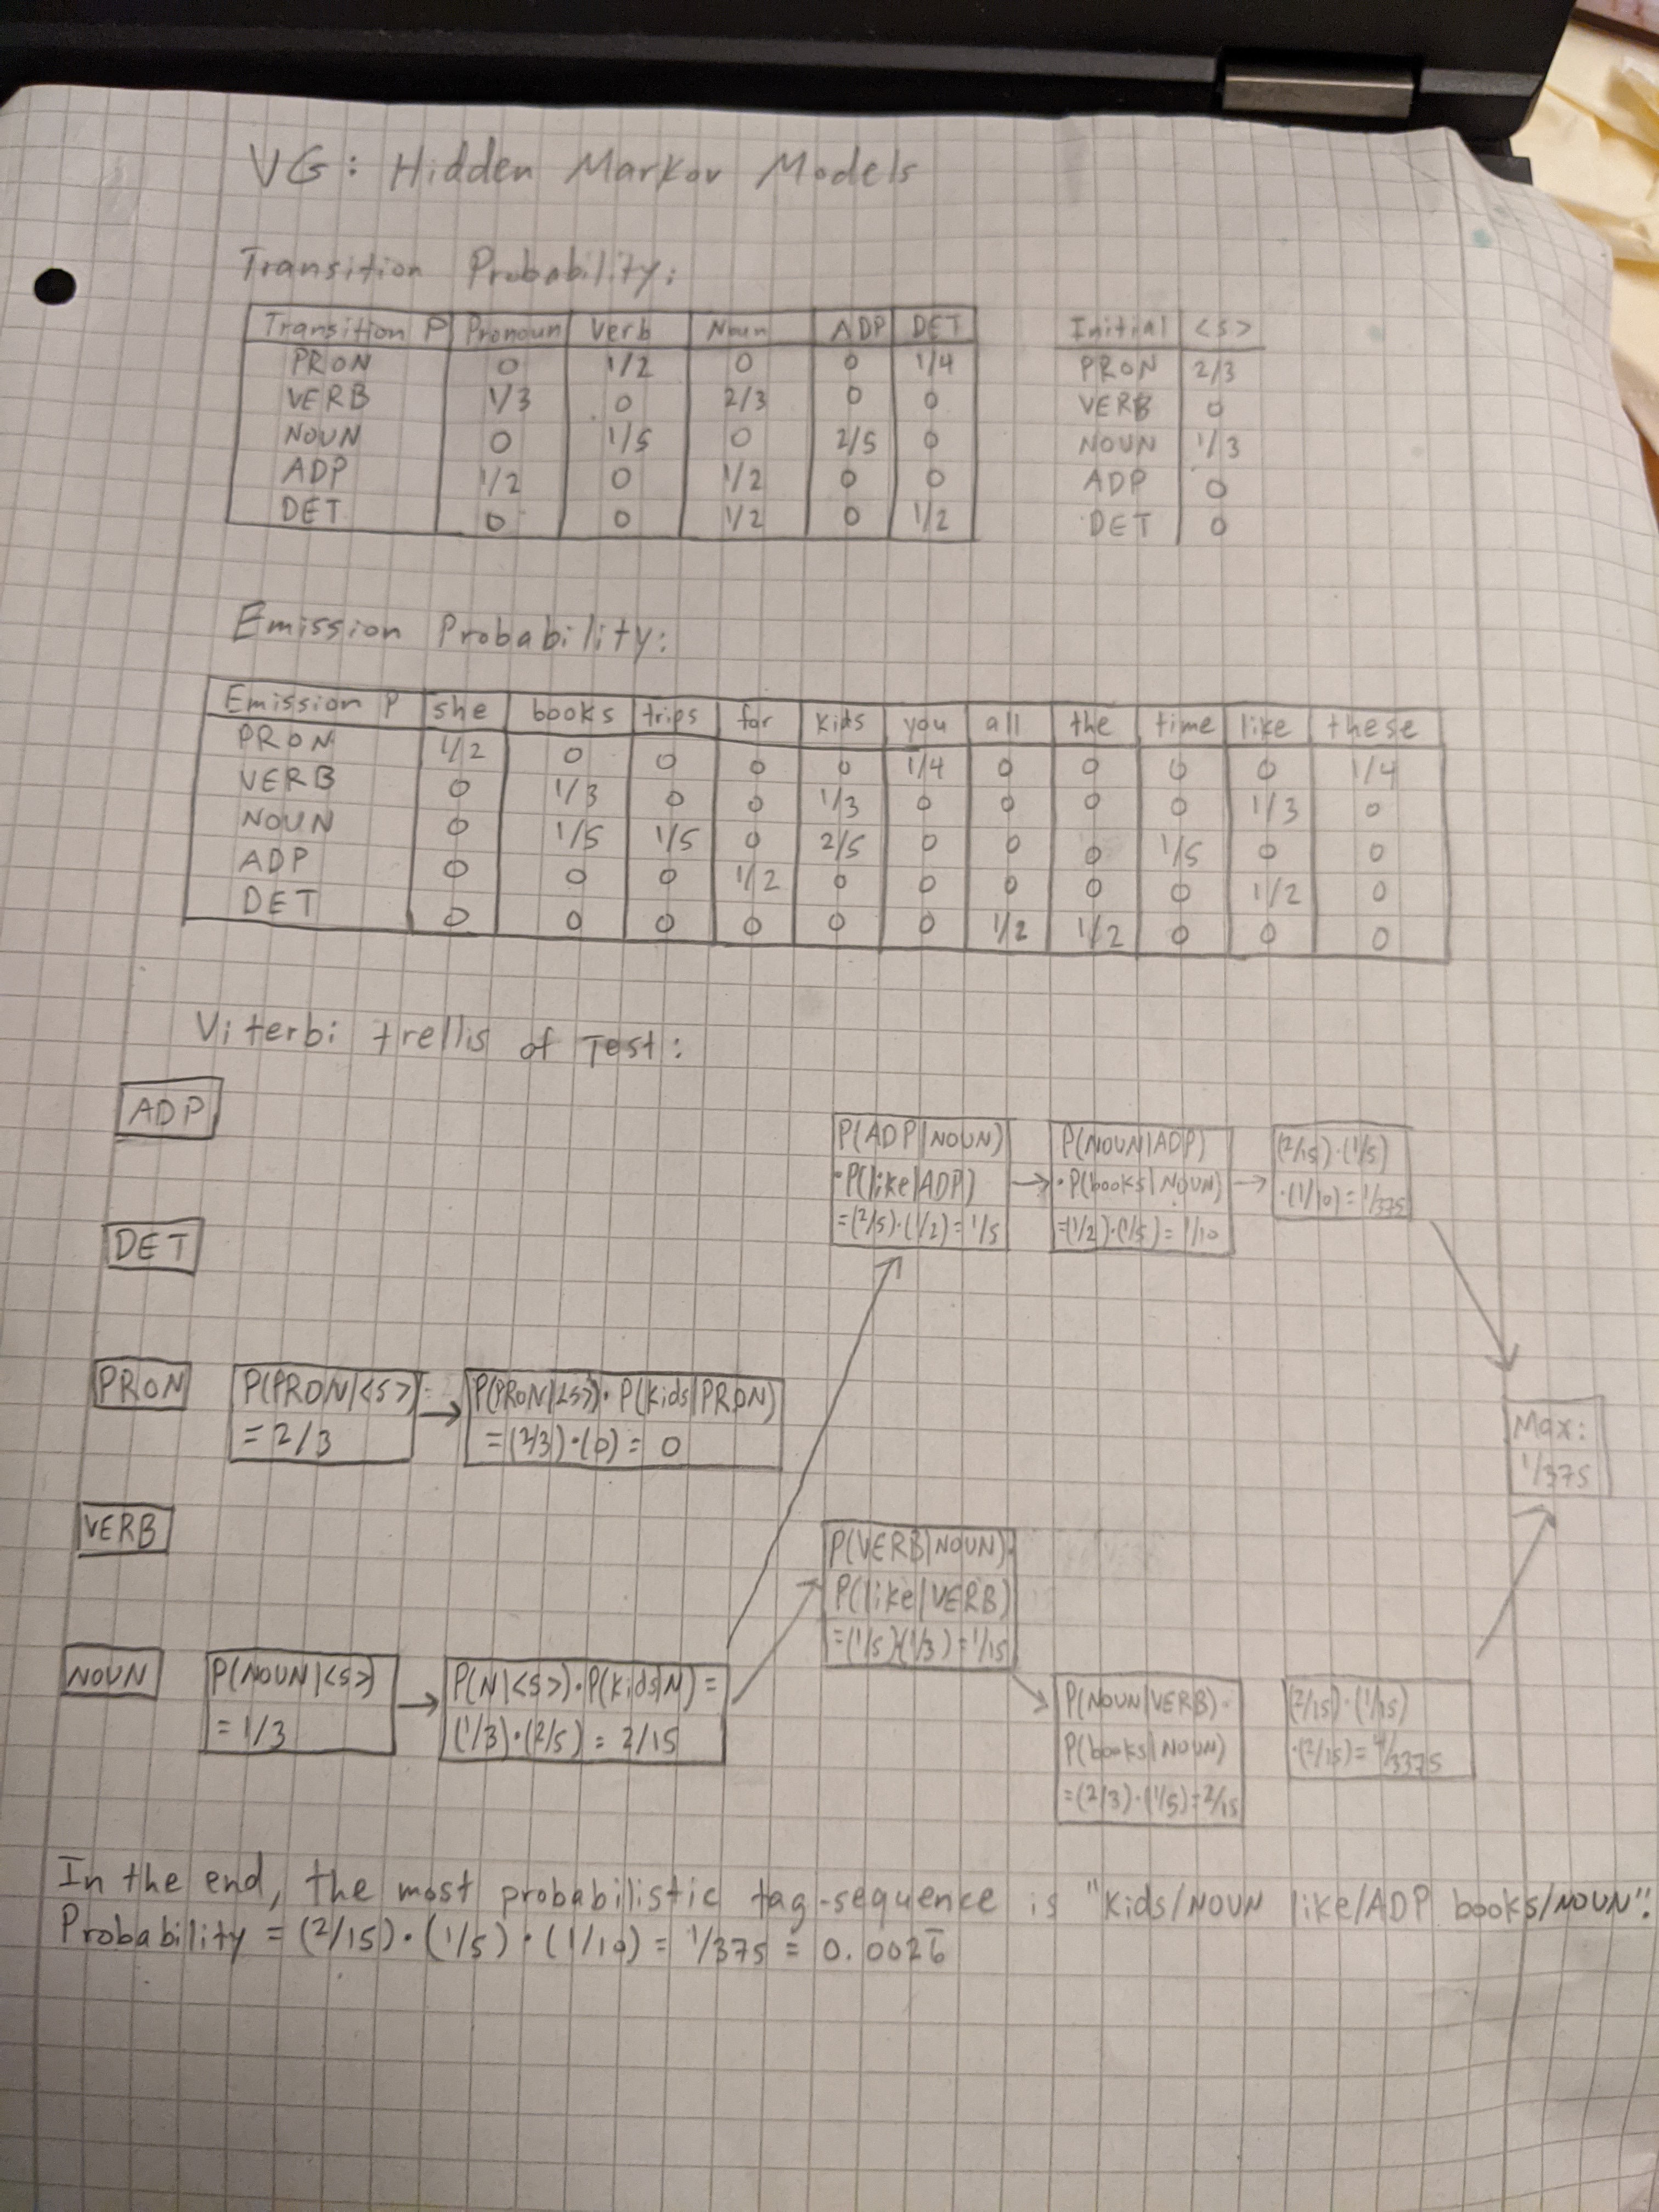 VG: Hidden Markov Models
Transition Probability:
Transition P Pronoun Verb Noun ADP DET
PRON 0 1/2 0 0 1/4
VERB 1/3 0 2/3 0 0
NOUN 0 1/5 0 2/5 0
ADP 1/2 0 1/2 0 0
DET 0 0 1/2 0 1/2
Initial <s>
PRON 2/3
VERB 0
NOUN 1/3
ADP 0
DET 0
Emission Probability:
Emission P she books trips for kids you all the time like these
PRON 1/2 0 0 0 0 1/4 0 0 0 0 1/4
VERB 0 1/3 0 0 1/3 0 0 0 0 1/3 0
NOUN 0 1/5 1/5 0 2/5 0 0 0 1/5 0 0
ADP 0 0 0 1/2 0 0 0 0 0 1/2 0
DET 0 0 0 0 0 0 1/2 1/2 0 0 0
Viterbi trellis of Test:
ADP
P(ADP|NOUN)
·P(like|ADP)
=(2/5)·(1/2)=1/5
P(NOUN|ADP)
·P(books|NOUN)
=(1/2)·(1/5)=1/10
(2/15)·(1/5)
·(1/10)=1/375
DET
PRON
P(PRON|<s>)
=2/3
P(PRON|<s>)·P(kids|PRON)
=(2/3)·(0)=0
Max:
1/375
VERB
P(VERB|NOUN)·
P(like|VERB)
=(1/5)(1/3)=1/15
NOUN
P(NOUN|<s>)
=1/3
P(N|<s>)·P(kids|N)=
(1/3)·(2/5)=2/15
P(NOUN|VERB)·
P(books|NOUN)
=(2/3)·(1/5)=2/15
(2/15)·(1/15)
·(2/15)=4/3375
In the end, the most probabilistic tag-sequence is "Kids/NOUN like/ADP books/NOUN".
Probability = (2/15)·(1/5)·(1/10) = 1/375 = 0.0026̅